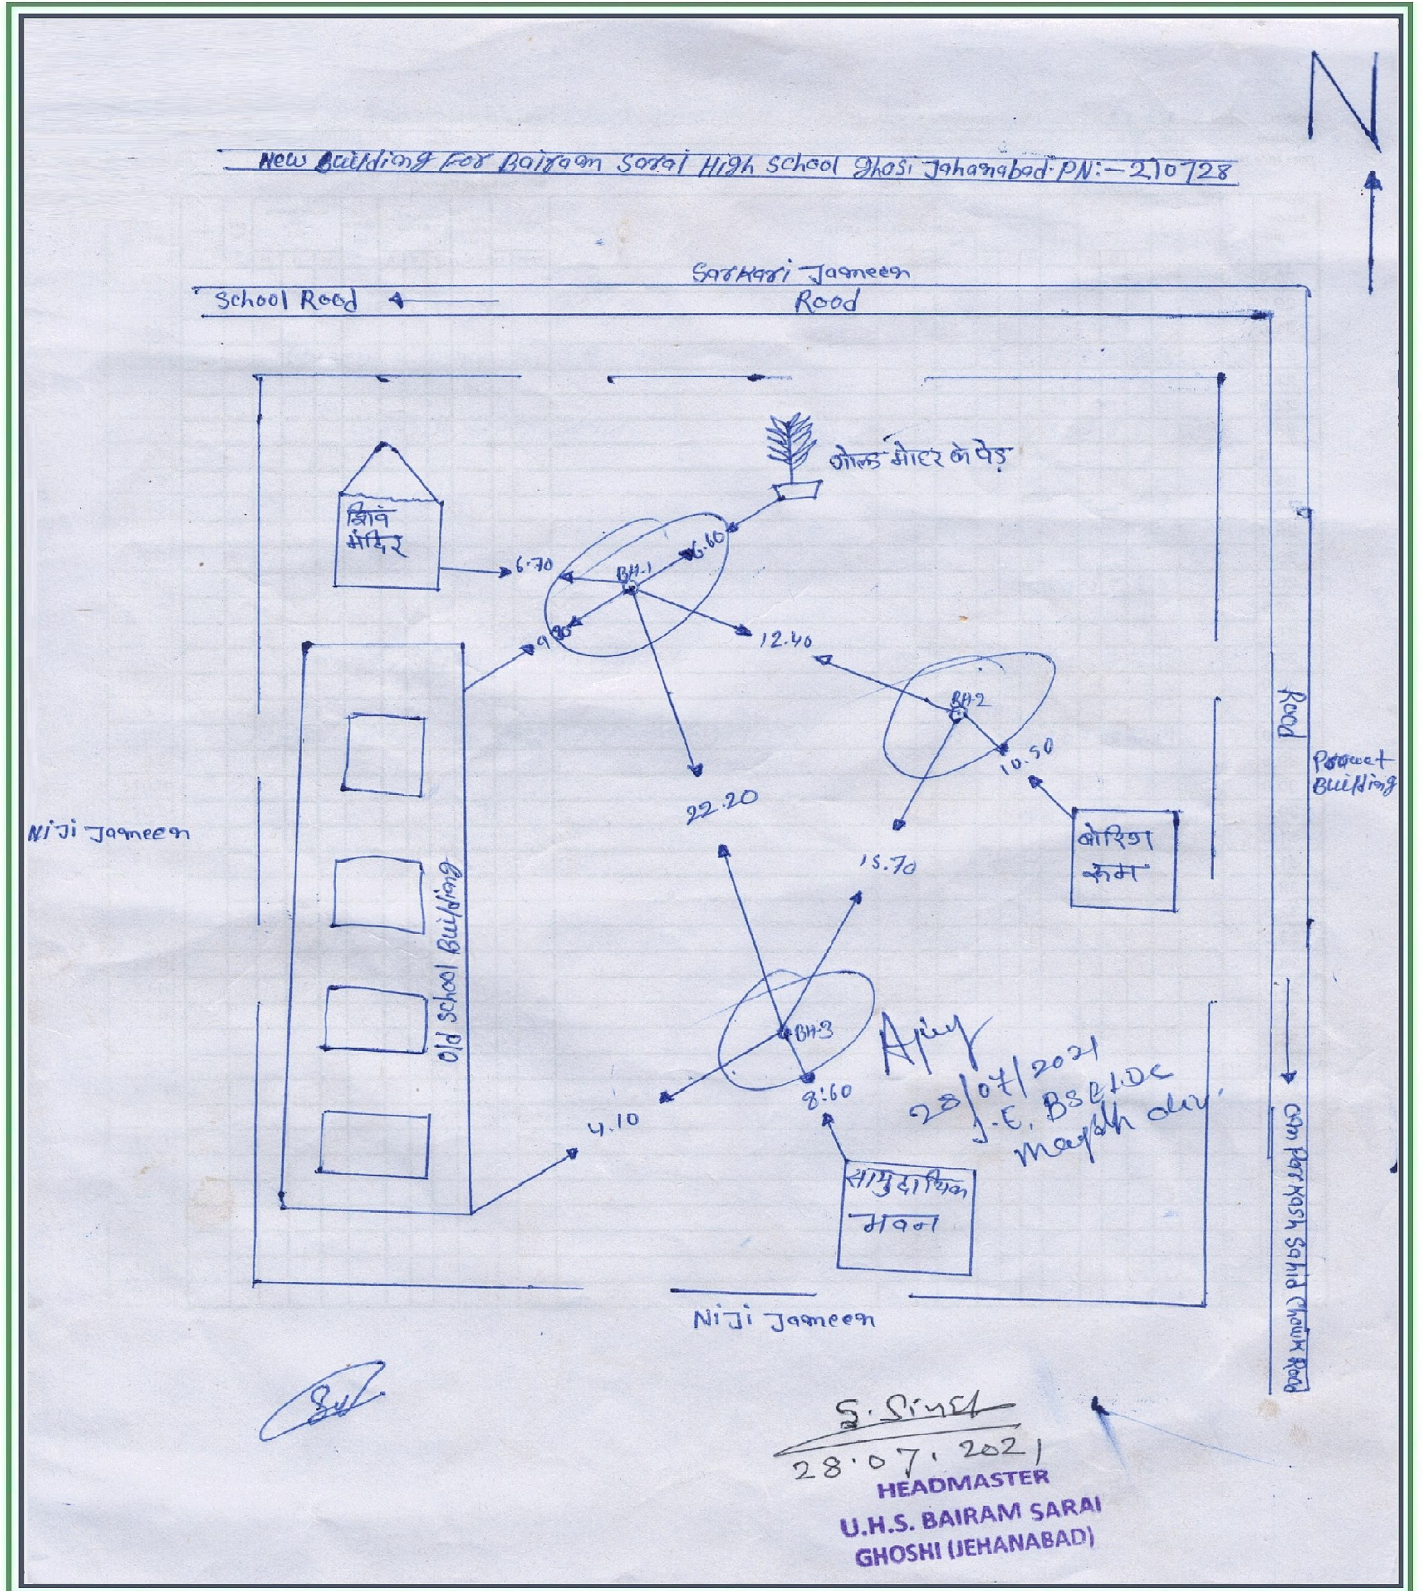 N
New Building For Bairam Sarai High School Ghosi Jahanabad PN:-210728
Sarkari Jameen
School Rood
Rood
गोल्ड मोहर के पेड़
शिव
मंदिर
6.70
BH-1
6.60
9.80
12.40
BH-2
10.50
22.20
15.70
Rood
Building
बोरिंग
रूम
Niji Jameen
Old School Building
BH-3
8.60
4.10
28/07/2021
J.E. BSEIDC
सामुदायिक
भवन
Oam Parkash Sahid Chowk Rood
Niji Jameen
S. Singh
28.07.2021
HEADMASTER
U.H.S. BAIRAM SARAI
GHOSHI (JEHANABAD)